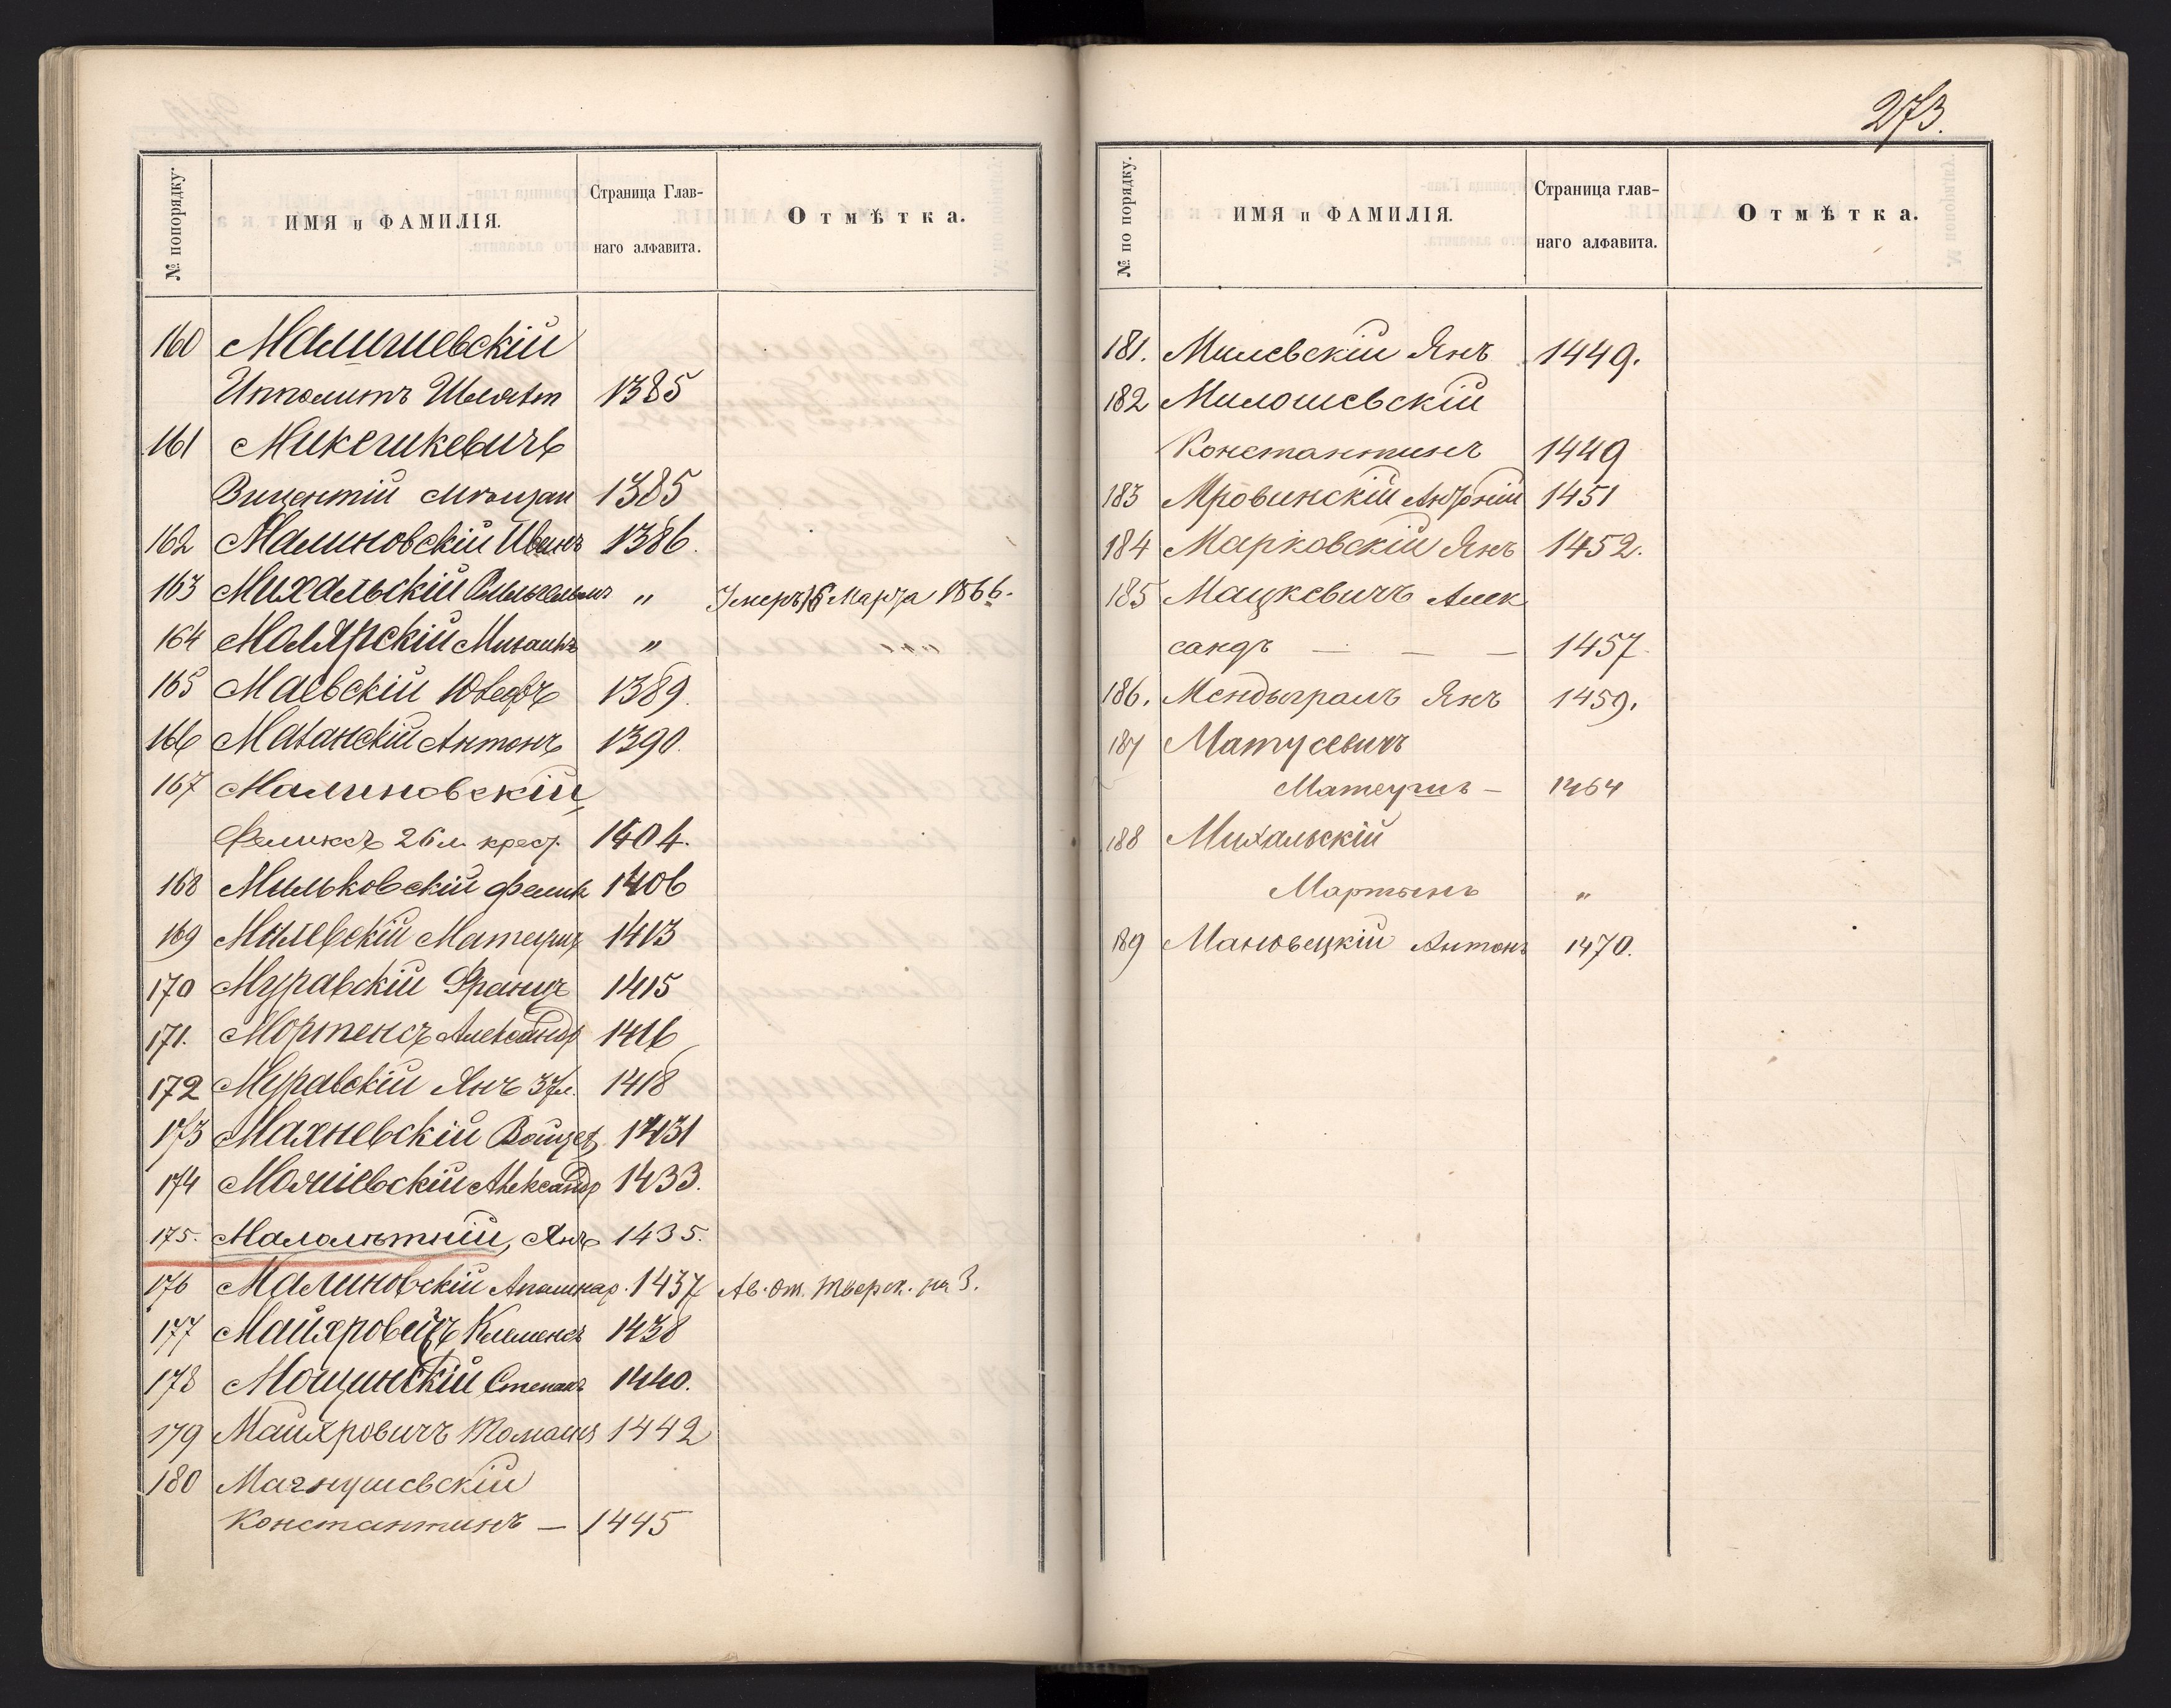 № попорядку.
ИМЯ и ФАМИЛІЯ.
Страница Глав-
наго алфавита.
Отмѣтка.
160 Малишевскій
Ипполитъ Шляхт 1385
161 Микешкевичъ
Вицентій мѣщан 1385
162 Малиновскій Иванъ 1386.
163 Михальскій Вильгельмъ „ Умеръ 16 Марта 1866.
164 Малярскій Михаилъ „
165 Маевскій Юзефъ 1389.
166 Маханскій Антонъ 1390.
167 Малиновскій
Феликсъ 26 л. крест. 1404.
168 Мильковскій Фелик 1406
169 Милевскій Матеуш 1413
170 Муравскій Францъ 1415
171. Мортенсъ Александр 1416
172 Муравскій Янъ 37 л. 1418
173 Махневскій Войцех 1431
174 Александр 1433.
175. Малолѣтній, Янъ 1435.
176 Малиновскій Аполинар. 1437 Ав. От. Тверск. на 3.
177 Клеменсъ 1438
178 Мощинскій Степанъ 1440.
179 Майхровичъ Томашъ 1442
180 Магнушевскій
Константинъ — 1445
273.
№ по порядку.
ИМЯ и ФАМИЛІЯ.
Страница глав-
наго алфавита.
Отмѣтка.
181. Милевскій Янъ 1449.
182 Милошевскій
Константинъ 1449
183 Мровинскій Антоній 1451
184 Марковскій Янъ 1452.
185 Мацкевичъ Алек
сандъ — — — 1457.
186. Мендыгралъ Янъ 1459.
187 Матусевичъ
Матеушъ — 1464
188 Михальскій
Мартынъ „
189 Мановецкій Антонъ 1470.